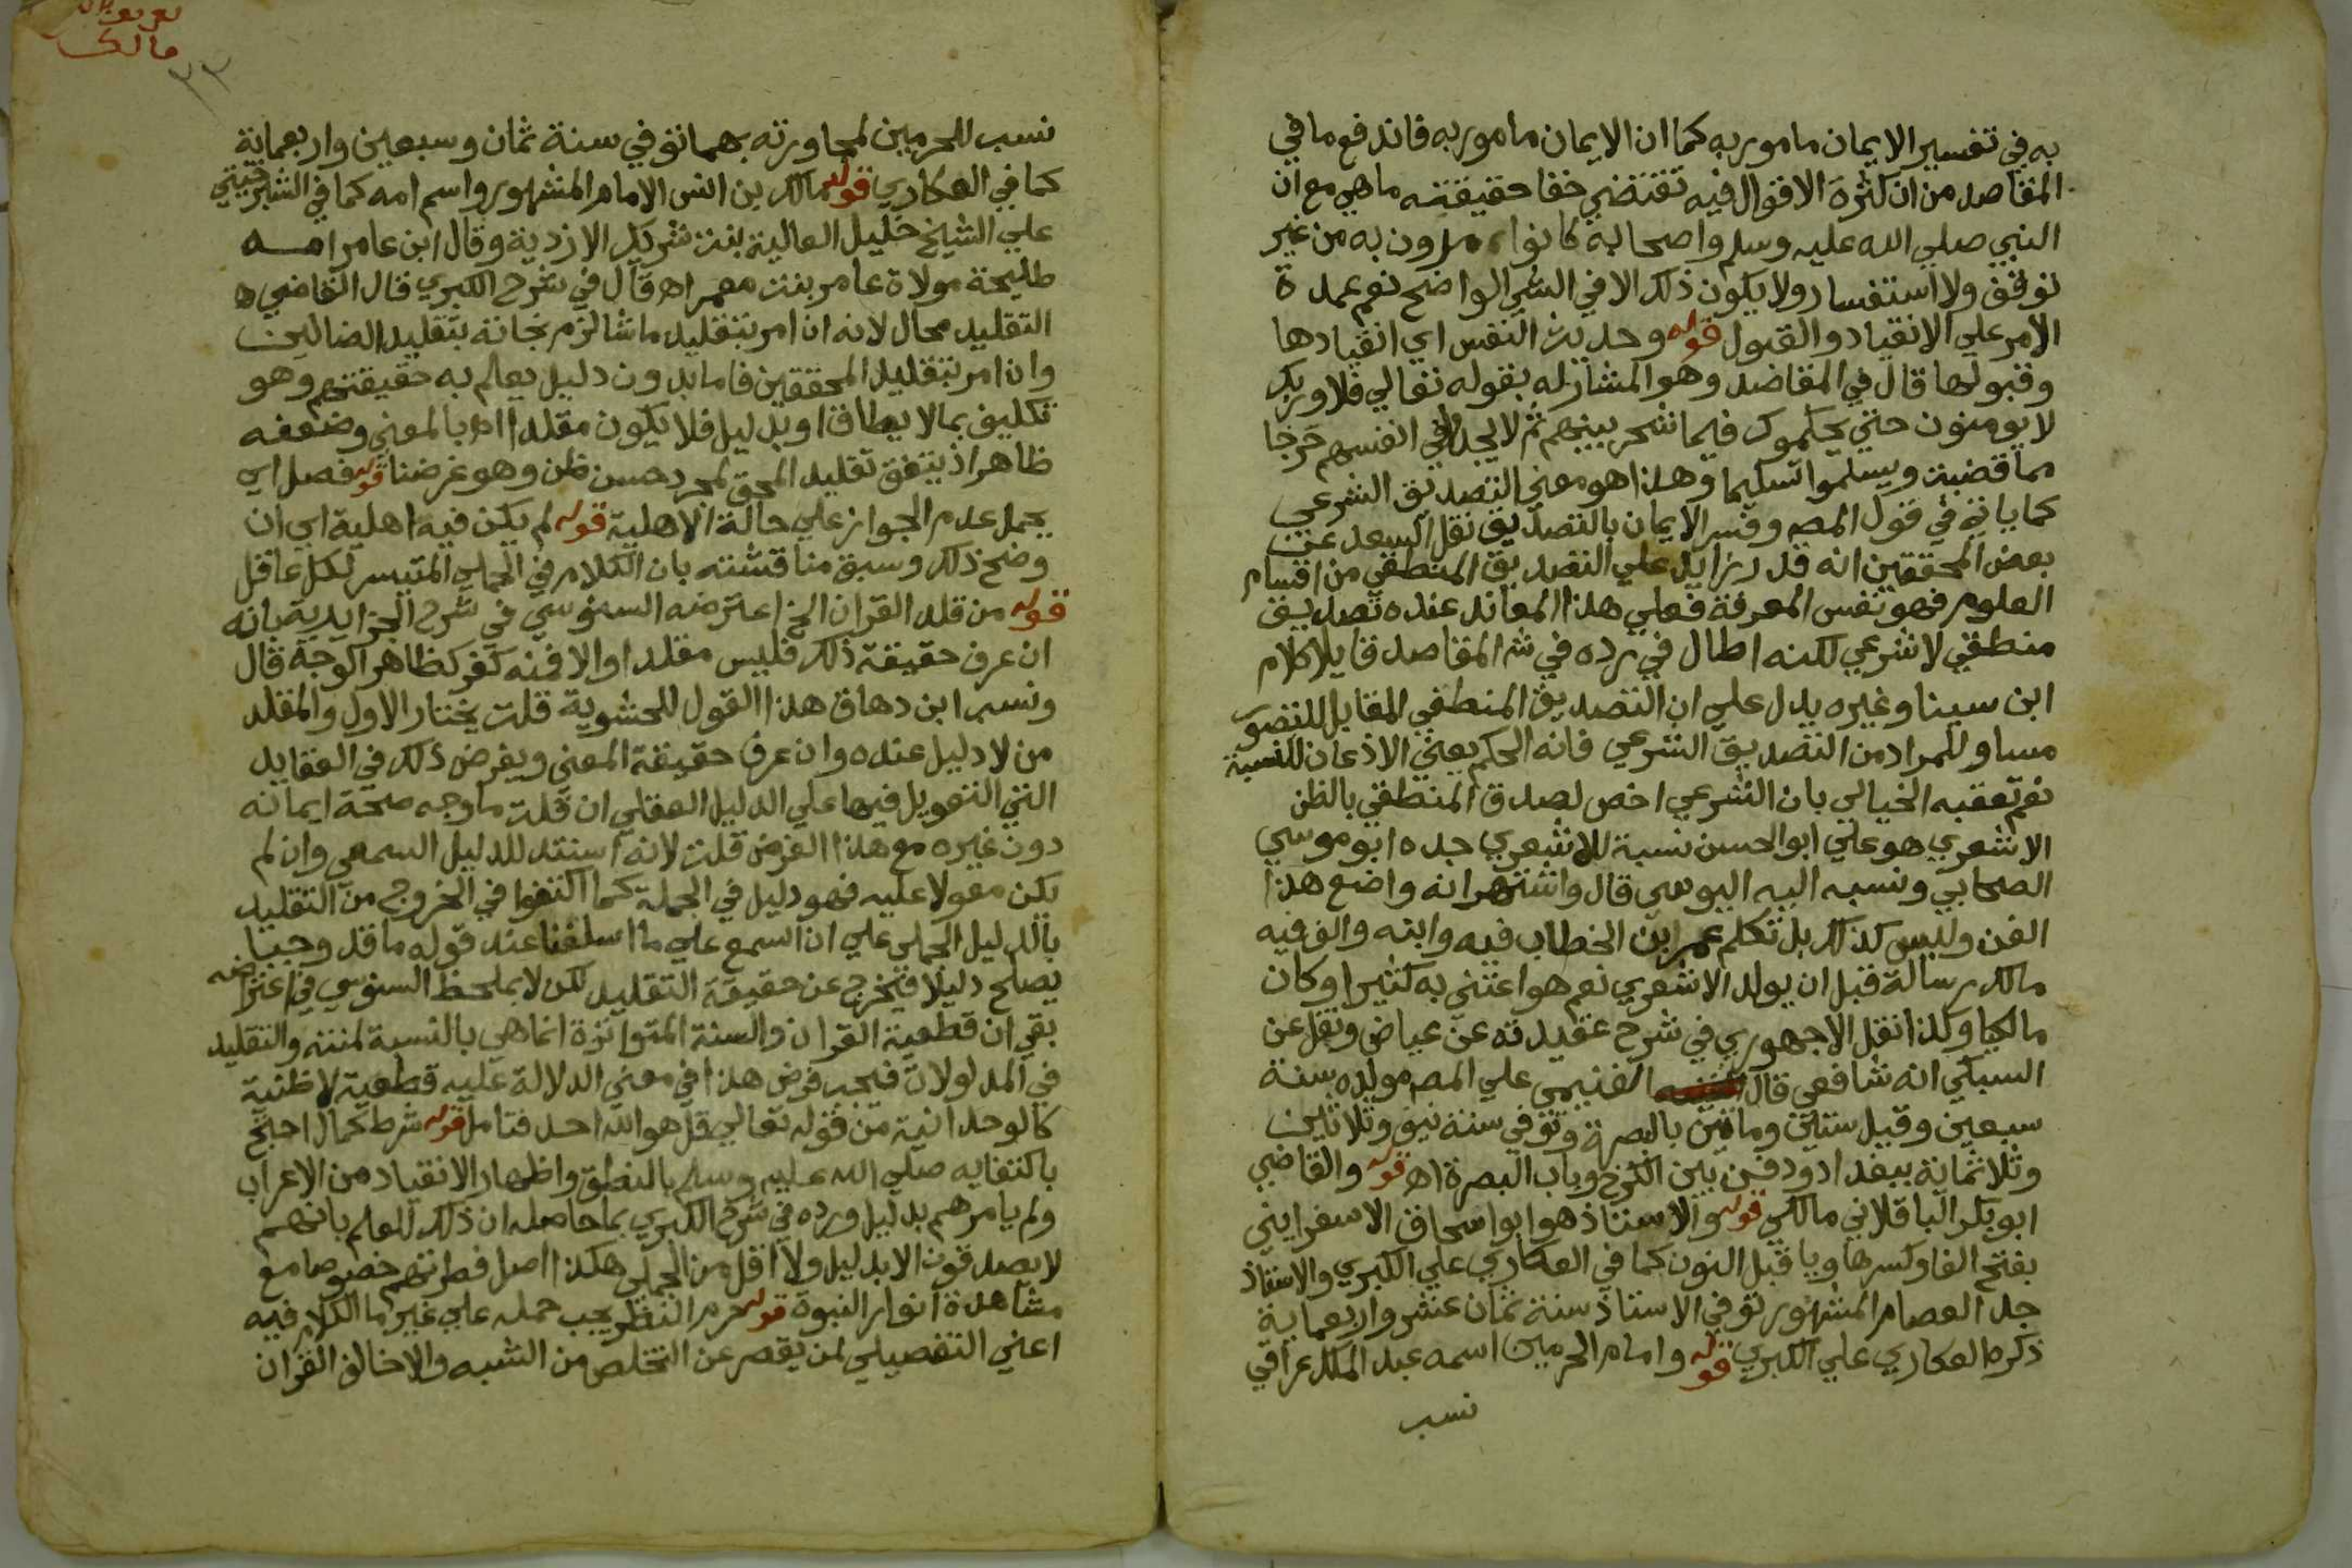 به في تفسير الايمان مامور به كما ان الايمان مامور به فاندفع ما في
المقاصد من ان كثرة الاقوال فيه تقتضي خفا حقيقته ماهي مع ان
النبي صلي الله عليه وسلم واصحابه كانوا يامرون به من غير
توقف ولا استفسار ولا يكون ذلك الا في الشي الواضح نعم عمدة
الامر علي الانقياد والقبول قوله وحديث النفس اي انقيادها
وقبولها قال في المقاصد وهو المشار له بقوله تعالي فلا وربك
لا يومنون حتي يحكموك فيما شجر بينهم ثم لا يجدوا في انفسهم حرجا
مما قضيت ويسلموا تسليما وهذا هو معني التصديق الشرعي
كما ياتي في قول المصـ وفسر الايمان بالتصديق نقل السعد عن
بعض المحققين انه قدر زايد علي التصديق المنطقي من اقسام
العلوم فهو نفس المعرفة فعلي هذا المعاند عنده تصديق
منطقي لا شرعي لكنه اطال في رده في شـ المقاصد قايلا كلام
ابن سينا وغيره يدل علي ان التصديق المنطقي المقابل للتصور
مساو للمراد من التصديق الشرعي فانه الحكم يعني الاذعان للنسبة
نعم تعقبه الخيالي بان الشرعي اخص لصدق المنطقي بالظن
الاشعري هو علي ابو الحسن نسبة للاشعري جده ابو موسي
الصحابي ونسبه اليه اليوسي قال واشتهر انه واضع هذا
الفن وليس كذلك بل تكلم عمر ابن الخطاب فيه وابنه والف فيه
مالك رسالة قبل ان يولد الاشعري نعم هو اعتني به كثيرا وكان
مالكيا وكذا نقل الاجهوري في شرح عقيدته عن عياض ونقل عن
السبكي انه شافعي قال الغنيمي علي المصـ مولده سنة
سبعين وقيل ستين ومائتين بالبصرة وتوفي سنة نيف وثلاثين
وثلاثمائة ببغداد ودفن بين الكرخ وباب البصرة اهـ قوله والقاضي
ابو بكر الباقلاني مالكي قوله والاستاذ هو ابو اسحاق الاسفرايني
بفتح الفا وكسرها ويا قبل النون كما في العكاري علي الكبري والاستاذ
جد العصام المشهور توفي الاستاذ سنة ثمان عشر واربعماية
ذكره العكاري علي الكبري قوله وامام الحرمين اسمه عبد الملك عراقي
نسب
مالك
٣٣
نسب للحرمين لمجاورته بهما توفي سنة ثمان وسبعين واربعماية
كما في العكاري قوله مالك بن انس الامام المشهور واسم امه كما في الشبرخيتي
علي الشيخ خليل العالية بنت شريك الازدية وقال ابن عامر امه
طليحة مولاة عامر بنت معمر اهـ قال في شرح الكبري قال القاضي
التقليد محال لانه ان امر بتقليد ما شا لزم نجاته بتقليد الضالين
وان امر بتقليد المحققين فاما بدون دليل يعلم به حقيقتهم وهو
تكليف بما لا يطاق او بدليل فلا يكون مقلدا اهـ بالمعني وضعفه
ظاهر اذ يتفق تقليد المحق لمجرد حسن ظن وهو غرضنا قوله فصل اي
يحمل عدم الجواز علي حالة الاهلية قوله لم يكن فيه اهلية اي ان
وضح ذلك وسبق مناقشته بان الكلام في الجملي المتيسر لكل عاقل
قوله من قلد القران الخ اعترضه السنوسي في شرح الجزايرية بانه
ان عرف حقيقة ذلك فليس مقلدا والا فمنه كفر كظاهر الوجه قال
ونسب ابن دهاق هذا القول للحشوية قلت يختار الاول والمقلد
من لا دليل عنده وان عرف حقيقة المعني ويفرض ذلك في العقايد
التي التعويل فيها علي الدليل العقلي ان قلت ما وجه صحة ايمانه
دون غيره مع هذا الفرض قلت لانه استند للدليل السمعي وان لم
يكن معولا عليه فهو دليل في الجملة كما اكتفوا في الخروج من التقليد
بالدليل الجملي علي ان السمع علي ما اسلفنا عند قوله ما قد وجبا
يصلح دليلا فتخرج عن حقيقة التقليد لكن لا بملحظ السنوسي في اعتراضه
بقي ان قطعية القران والسنة المتواترة انما هي بالنسبة لمتنه والتقليد
في المدلولات فيجب فرض هذا في معني الدلالة عليه قطعية لا ظنية
كالوحدانية من قوله تعالي قل هو الله احد فتامل قوله شرط كمال احتج
باكتفايه صلي الله عليه وسلم بالنطق واظهار الانقياد من الاعراب
ولم يامرهم بدليل ورده في شرح الكبري بما حاصله ان ذلك للعلم بانهم
لا يصدقون الا بدليل ولا اقل من الجملي هكذا اصل فطرتهم خصوصا مع
مشاهدة انوار النبوة قوله حرم النظر يجب حمله علي غير ما الكلام فيه
اعني التفصيلي لمن يقصر عن التخلص من الشبه والا خالف القران